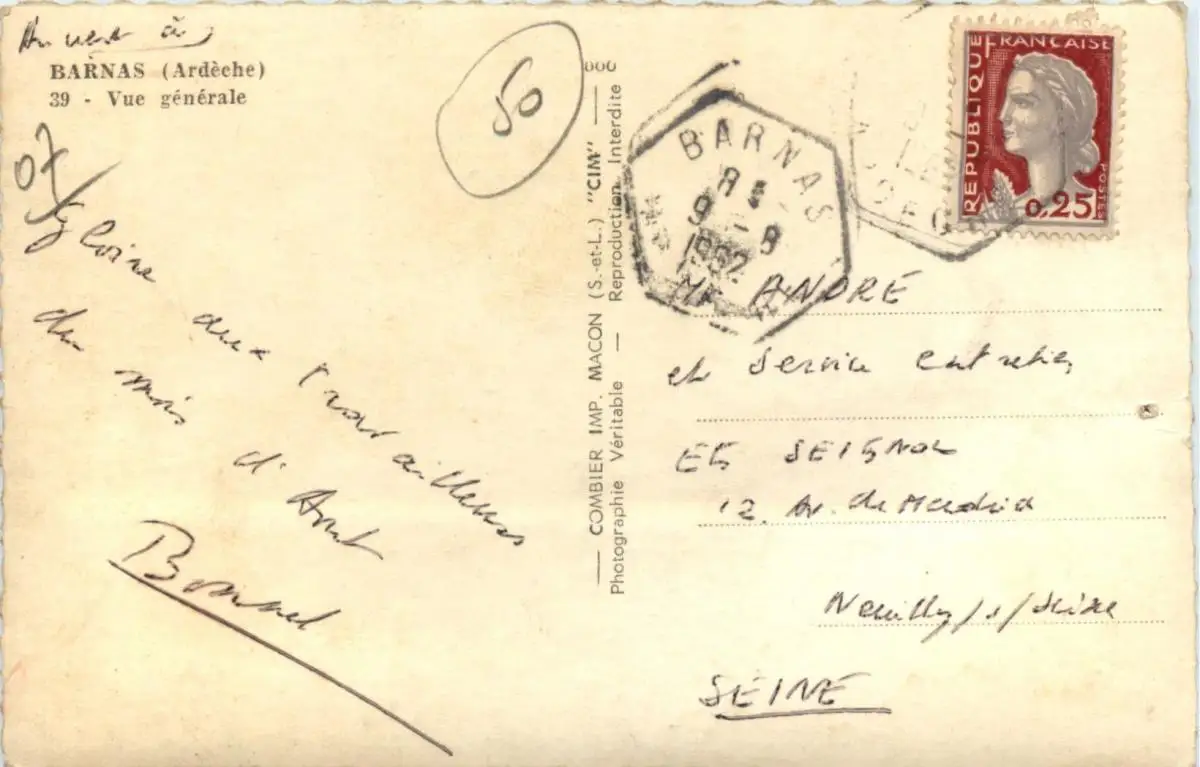 Au vert à
BARNAS (Ardèche)
39 - Vue générale
07
50
Gloire aux travailleurs
du mois d'Aout
Bonnel
— COMBIER IMP. MACON (S.-et-L.) "CIM" —
Photographie Véritable — Reproduction Interdite
BARNAS
9 - 8
1962
ARDECHE
REPUBLIQUE FRANÇAISE
POSTES
0,25
Mr ANDRÉ
et Service entretien
ETS SEIGNOL
12. Av. de Madrid
Neuilly/s/Seine
SEINE